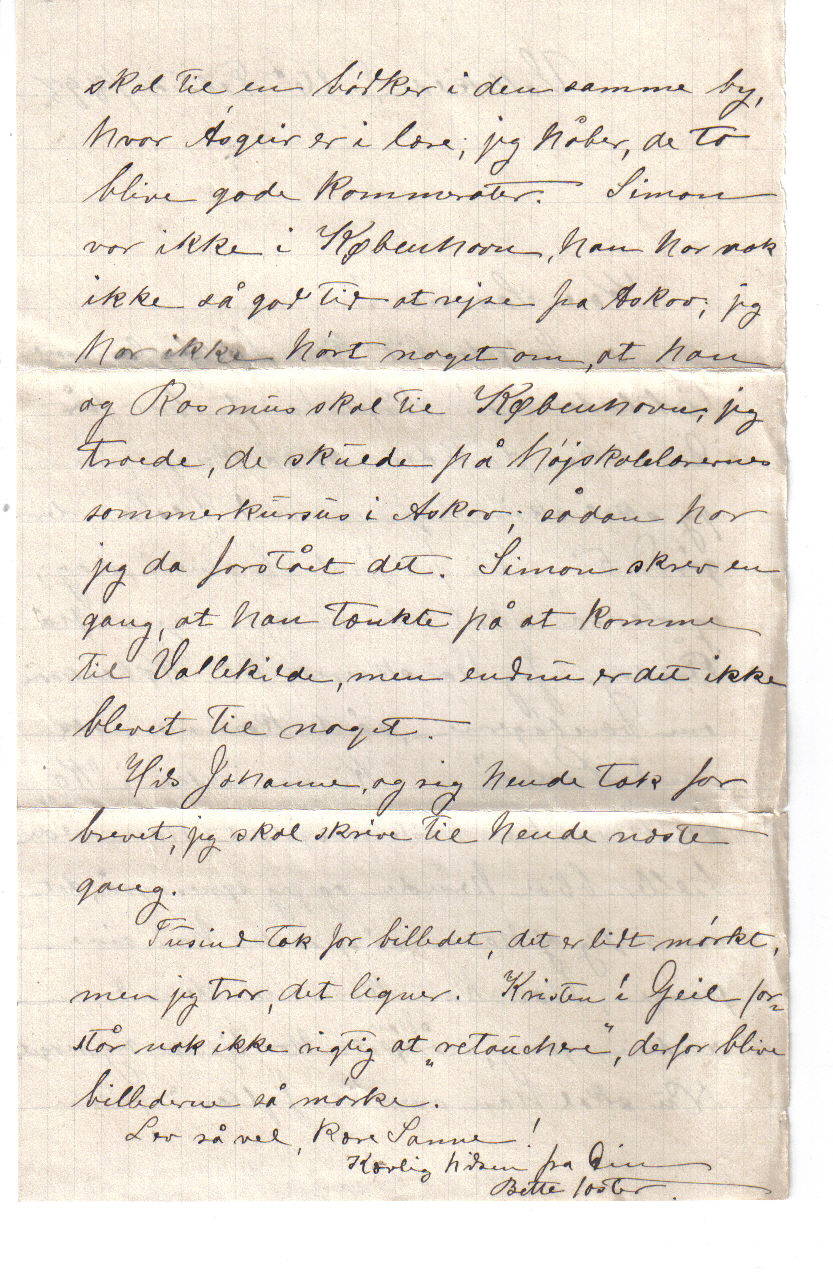 skal til en bödker i den samme by,
hvor Ásgeir er i lære; jeg håber, de to
blive gode kammerater. Simon
var ikke i København, han har nok
ikke så god tid at rejse fra Askov; jeg
har ikke hørt noget om, at han
og Rasmus skal til København; jeg
troede, de skulde på højskolelærernes
sommerkursus i Askov; sådan har
jeg da forstået det. Simon skrev en
gang, at han tænkte på at komme
til Vallekilde, men endnu er det ikke
blevet til noget.
Hils Johanne, og sig hende tak for
brevet, jeg skal skrive til hende næste
gang.
Tusind tak for billedet, det er lidt mörkt,
men jeg tror, det ligner. Kristen í Geil for-
står nok ikke rigtig at „retouchere“, derfor blive
billederne så mörke.
Lev så vel, kære Sanne!
Kærlig hilsen fra Din
Bette foster.